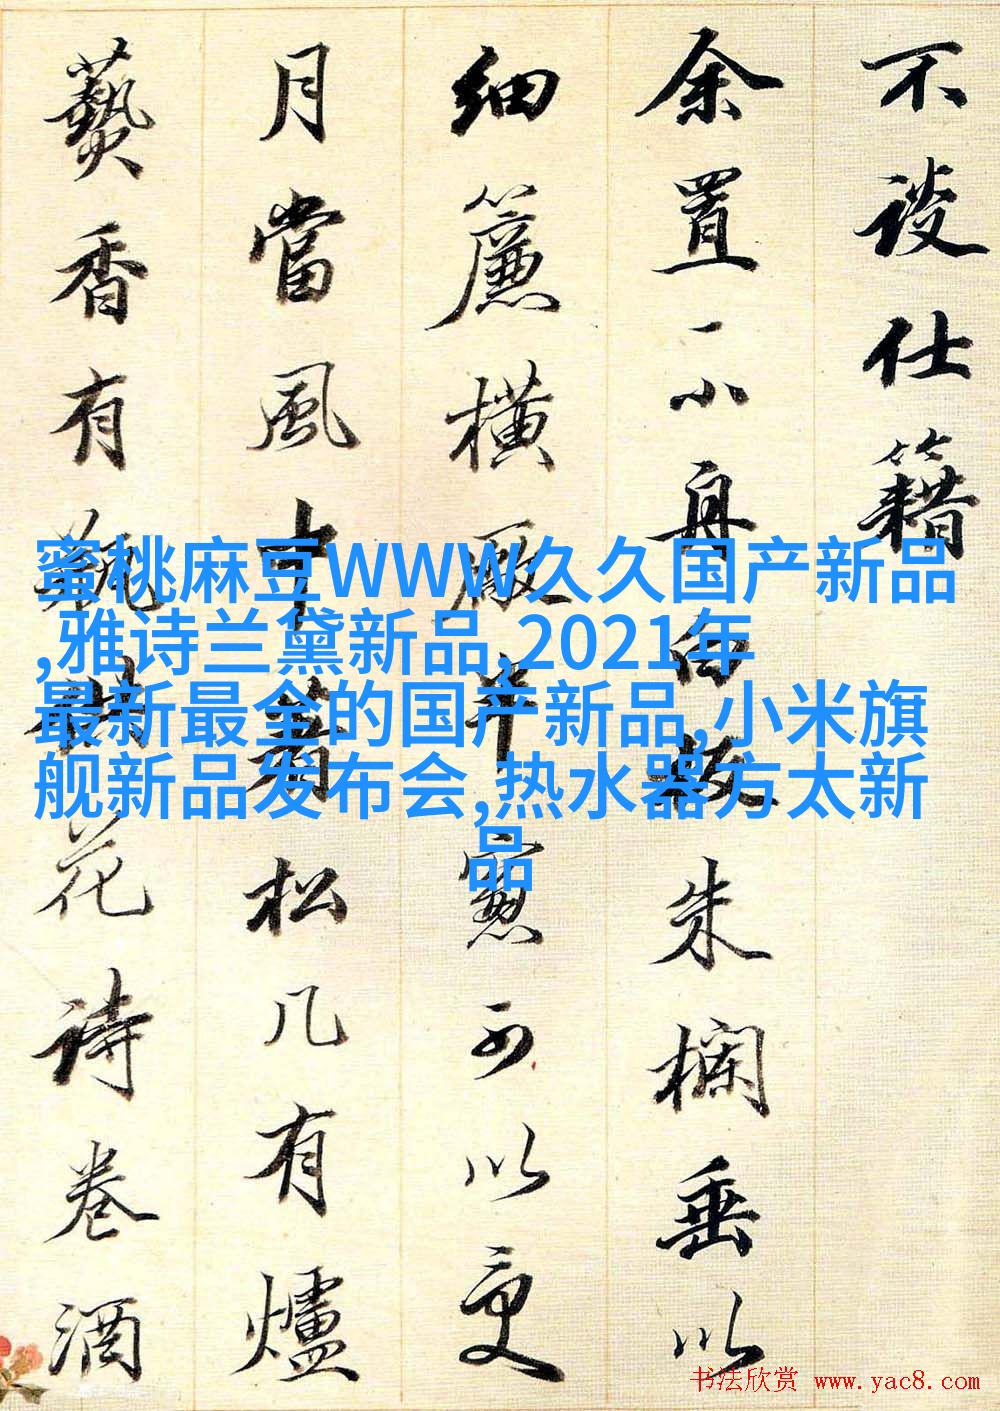 不談仕籍
余置一小舟白板朱欄垂以
細簾橫厰半窻可以受
月當風中著松几有爐
爇香有瓶花詩卷酒
蜜桃麻豆WWW久久国产新品
,雅诗兰黛新品,2021年
最新最全的国产新品,小米旗
舰新品发布会,热水器方太新
品
书法欣赏 www.yac8.com